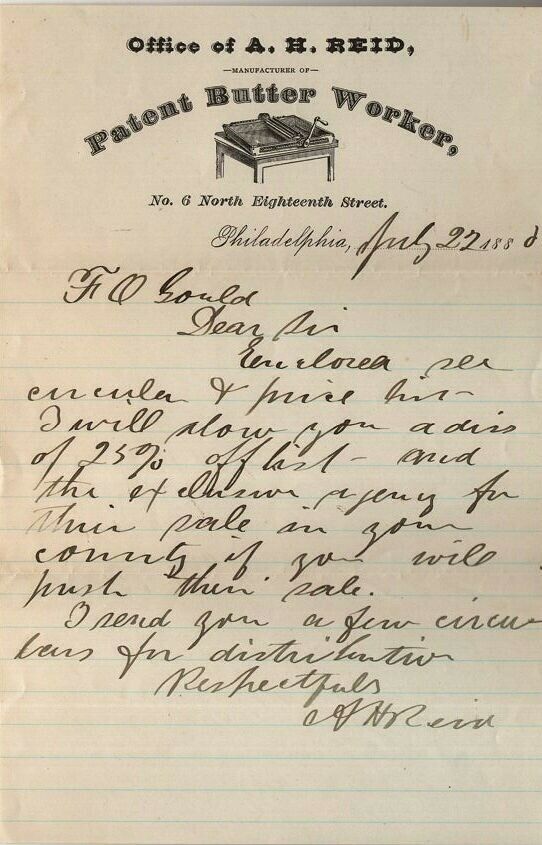 Office of A. H. REID,
—MANUFACTURER OF—
Patent Butter Worker,
No. 6 North Eighteenth Street.
Philadelphia, July 27 188
F O Gould
Dear Sir
Enclosed see
circular & price list
I will alow you a dis
of 25% off list – and
the exclusive agency for
their sale in your
county if you will
push their sale.
I send you a few circu
lars for distribution
Respectfully
A H Reid